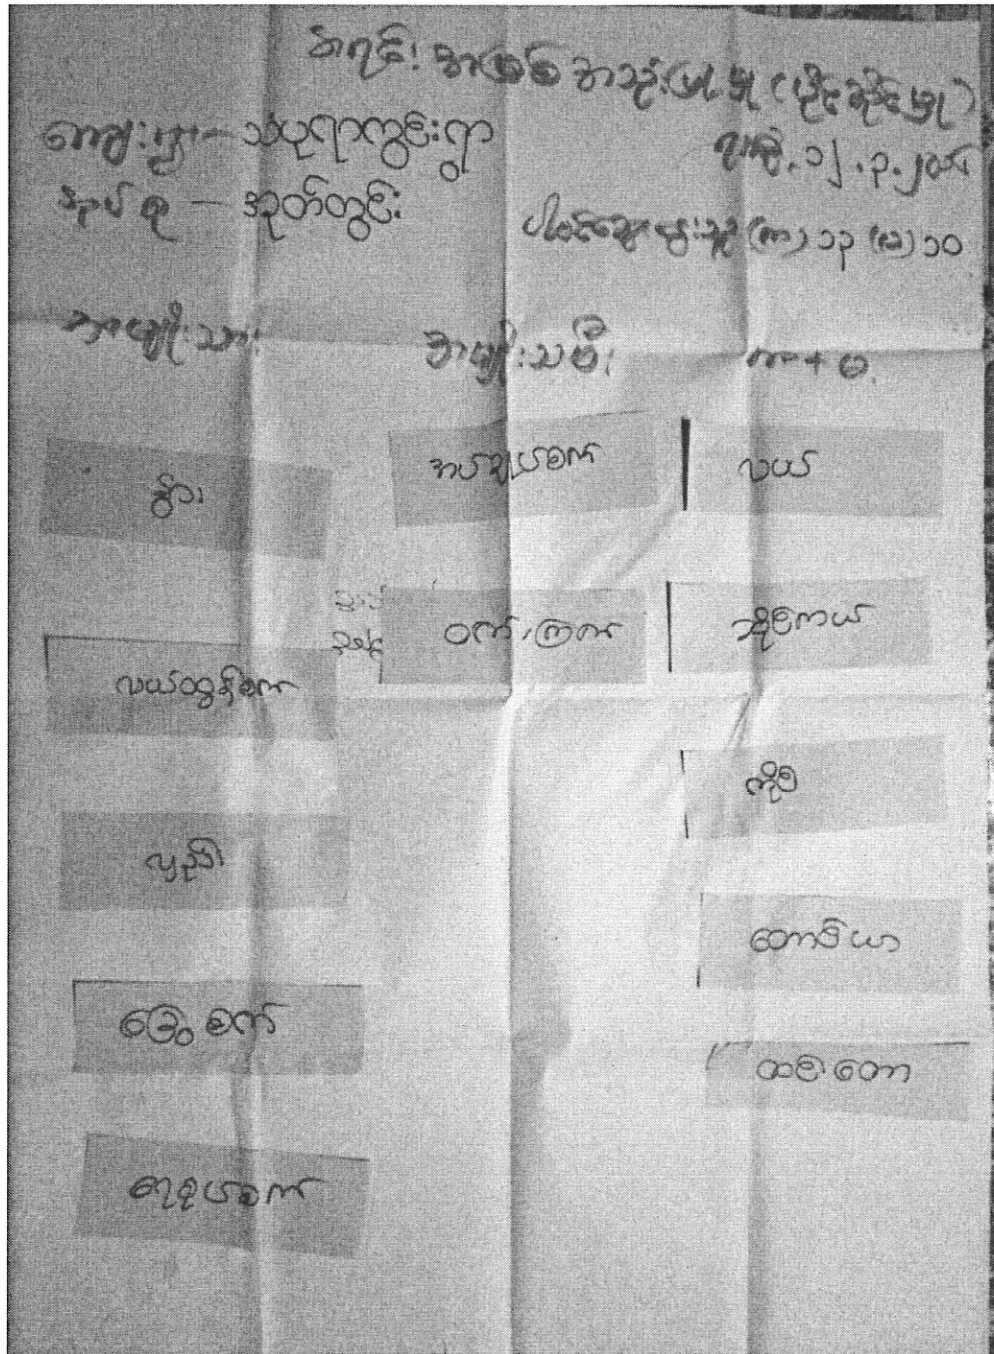 အရင်းအမြစ် အသုံးပြုမှု (ပိုင်ဆိုင်မှု)
ကျေးရွာ - သံပုရာကွင်းရွာ
ရက်စွဲ. ၁၂.၃.၂၀၁
အုပ်စု - အုတ်တွင်း
ပါဝင်ဆွေးနွေးသူ (ကျား) ၁၃ (မ) ၁၀
အမျိုးသား အမျိုးသမီး ကျား + မ
နွား အပ်ချုပ်စက် လယ်
ဝက်၊ကြက် ဆိုင်ကယ်
လယ်ထွန်စက်
ကိုင်း
လှည်း
တောင်ယာ
ခြွေစက်
ထင်းတော
ရေစုပ်စက်